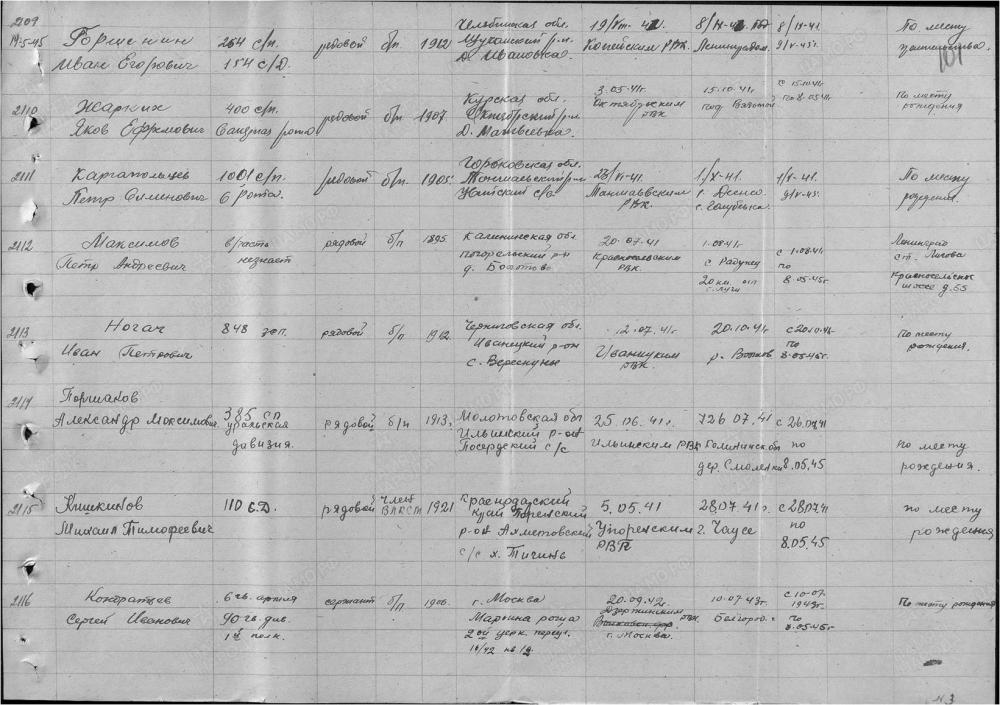 2109 Горшенин 254 с/п. рядовой б/п. 1912 Челябинская обл. 19/VIII-41 8/IX-41 8/IX-41. По месту
19-5-45 Иван Егорович 154 с/д. Д. Ивановка. Копейским РВК. Ленинград. 9/V-45г. жительства.
101
2110 Жарких 400 с/п. рядовой б/п 1907 Курская обл. 3.05.41г. 15.10.41г. с 15.10.41г. По месту
Яков Ефимович Санузная рота Октябрьский р-н Октябрьским под Вязьмой по 8.05.45г рождения
Д. Матвеевка. РВК.
2111 Каргапольцев 1001 с/п. рядовой б/п. 1905. Горьковская обл. 23/VI-41. 1/X-41. 1/X-41. По месту
Петр Семенович 6 рота. Тоншаевский р-н Тоншаевским г. Десна 9/V-45. рождения.
с/с РВК. с. Голубевка.
2112 Максимов в/часть рядовой б/п 1895. Калининская обл. 20.07.41 1.08.41г с 1.08.41г Ленинград
Петр Андреевич незнает Погорельский р-н Красносельским с Радунец по ст. Лигова
д. РВК. 20 км. от 8.05.45г Красносельское
г. Луги шосе д. 55
2113 Ногач 848 зсп. рядовой б/п 1912. Черниговская обл. 12.07.41г 20.10.41г с 20.10.41г По месту
Иван Петрович Иваницкий р-он Иваницким р. Волхов по рождения.
с. Верескуны РВК. 8.05.45г.
2114 Поршаков
Александр Максимович 385 сп рядовой б/п 1913г. Молотовская обл 25.06.41г. 26.07.41 с 26.07.41
уральская Ильинский р-он Ильинским РВК по По месту
дивизия. Посердский с/с дер. Смоленки 8.05.45 рождения.
2115 Кишкинов 110 с.д. рядовой член 1921 Краснодарский 5.05.41 28.07.41 с 28.07.41 по месту
ВЛКСМ край
Михаил Тимофеевич р-он Ахметовский Упоренским г. Чаусе по рождения
с/с х. Тичинь РВК 8.05.45
2116 Кондратцев 6 гв. армия сержант б/п 1906. г. Москва 20.09.42г. 10.07.43г. с 10.07. По месту рождения
Сергей Иванович 90 гв. див. Марьина роща Дзержинским РВК Белгород. 1943г.
1й полк. 2ой церк. переул. г. Москва. по 8.05.45г
10/42 кв 12.